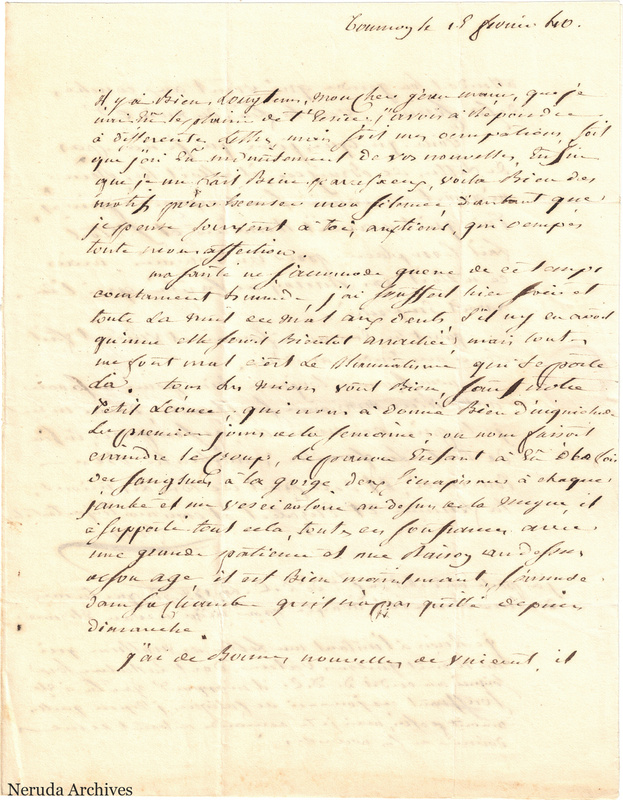 Tournay le 15 fevrier 40.
il y a Bien Longtems, mon cher jean marie, que je
n'ai Eû le plaisir de t'Ecrire, j'avois à Répondre
à differentes Lettres, mais soit mes occupations, soit
que j'ai Eû indirectement de vos nouvelles, Enfin
que je me suis Bien paresseux, voilà Bien des
motifs pour Excuser mon silence, d'autant que
je pense souvent à toi, aux tiens, qui occupés
toute mon affection.
ma santé ne s'acomode guere de ce temps
constament humide, j'ai souffert hier soir et
toute La nuit du mal aux dents, s'il n'y en avoit
qu'une elle seroit Bientot arrachée, mais toutes
me font mal c'est Le Rhumatisme qui se porte
La. tous Les miens vont Bien, sauf notre
Petit Léonce, qui nous a donné Bien d'inquietude
Les premiers jours de la semaine, on nous faisoit
craindre le croup, Le pauvre Enfant à Eû
des sangsues à la gorge deux sinapismes à chaque
jambe et un vesicatoire au dessus de la nuque, il
a supporté tout cela, toutes ces souffrances avec
une grande patience et une Raison au dessus
de son age, il est Bien maintenant,
dans sa chambre qu'il n'a pas quitté depuis
dimanche.
j'ai de Bonnes nouvelles de Vincent, il
Neruda Archives